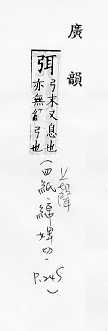 廣韻
弭 弓末又息也
亦無緣弓也
(四紙:綿婢切)
P.245